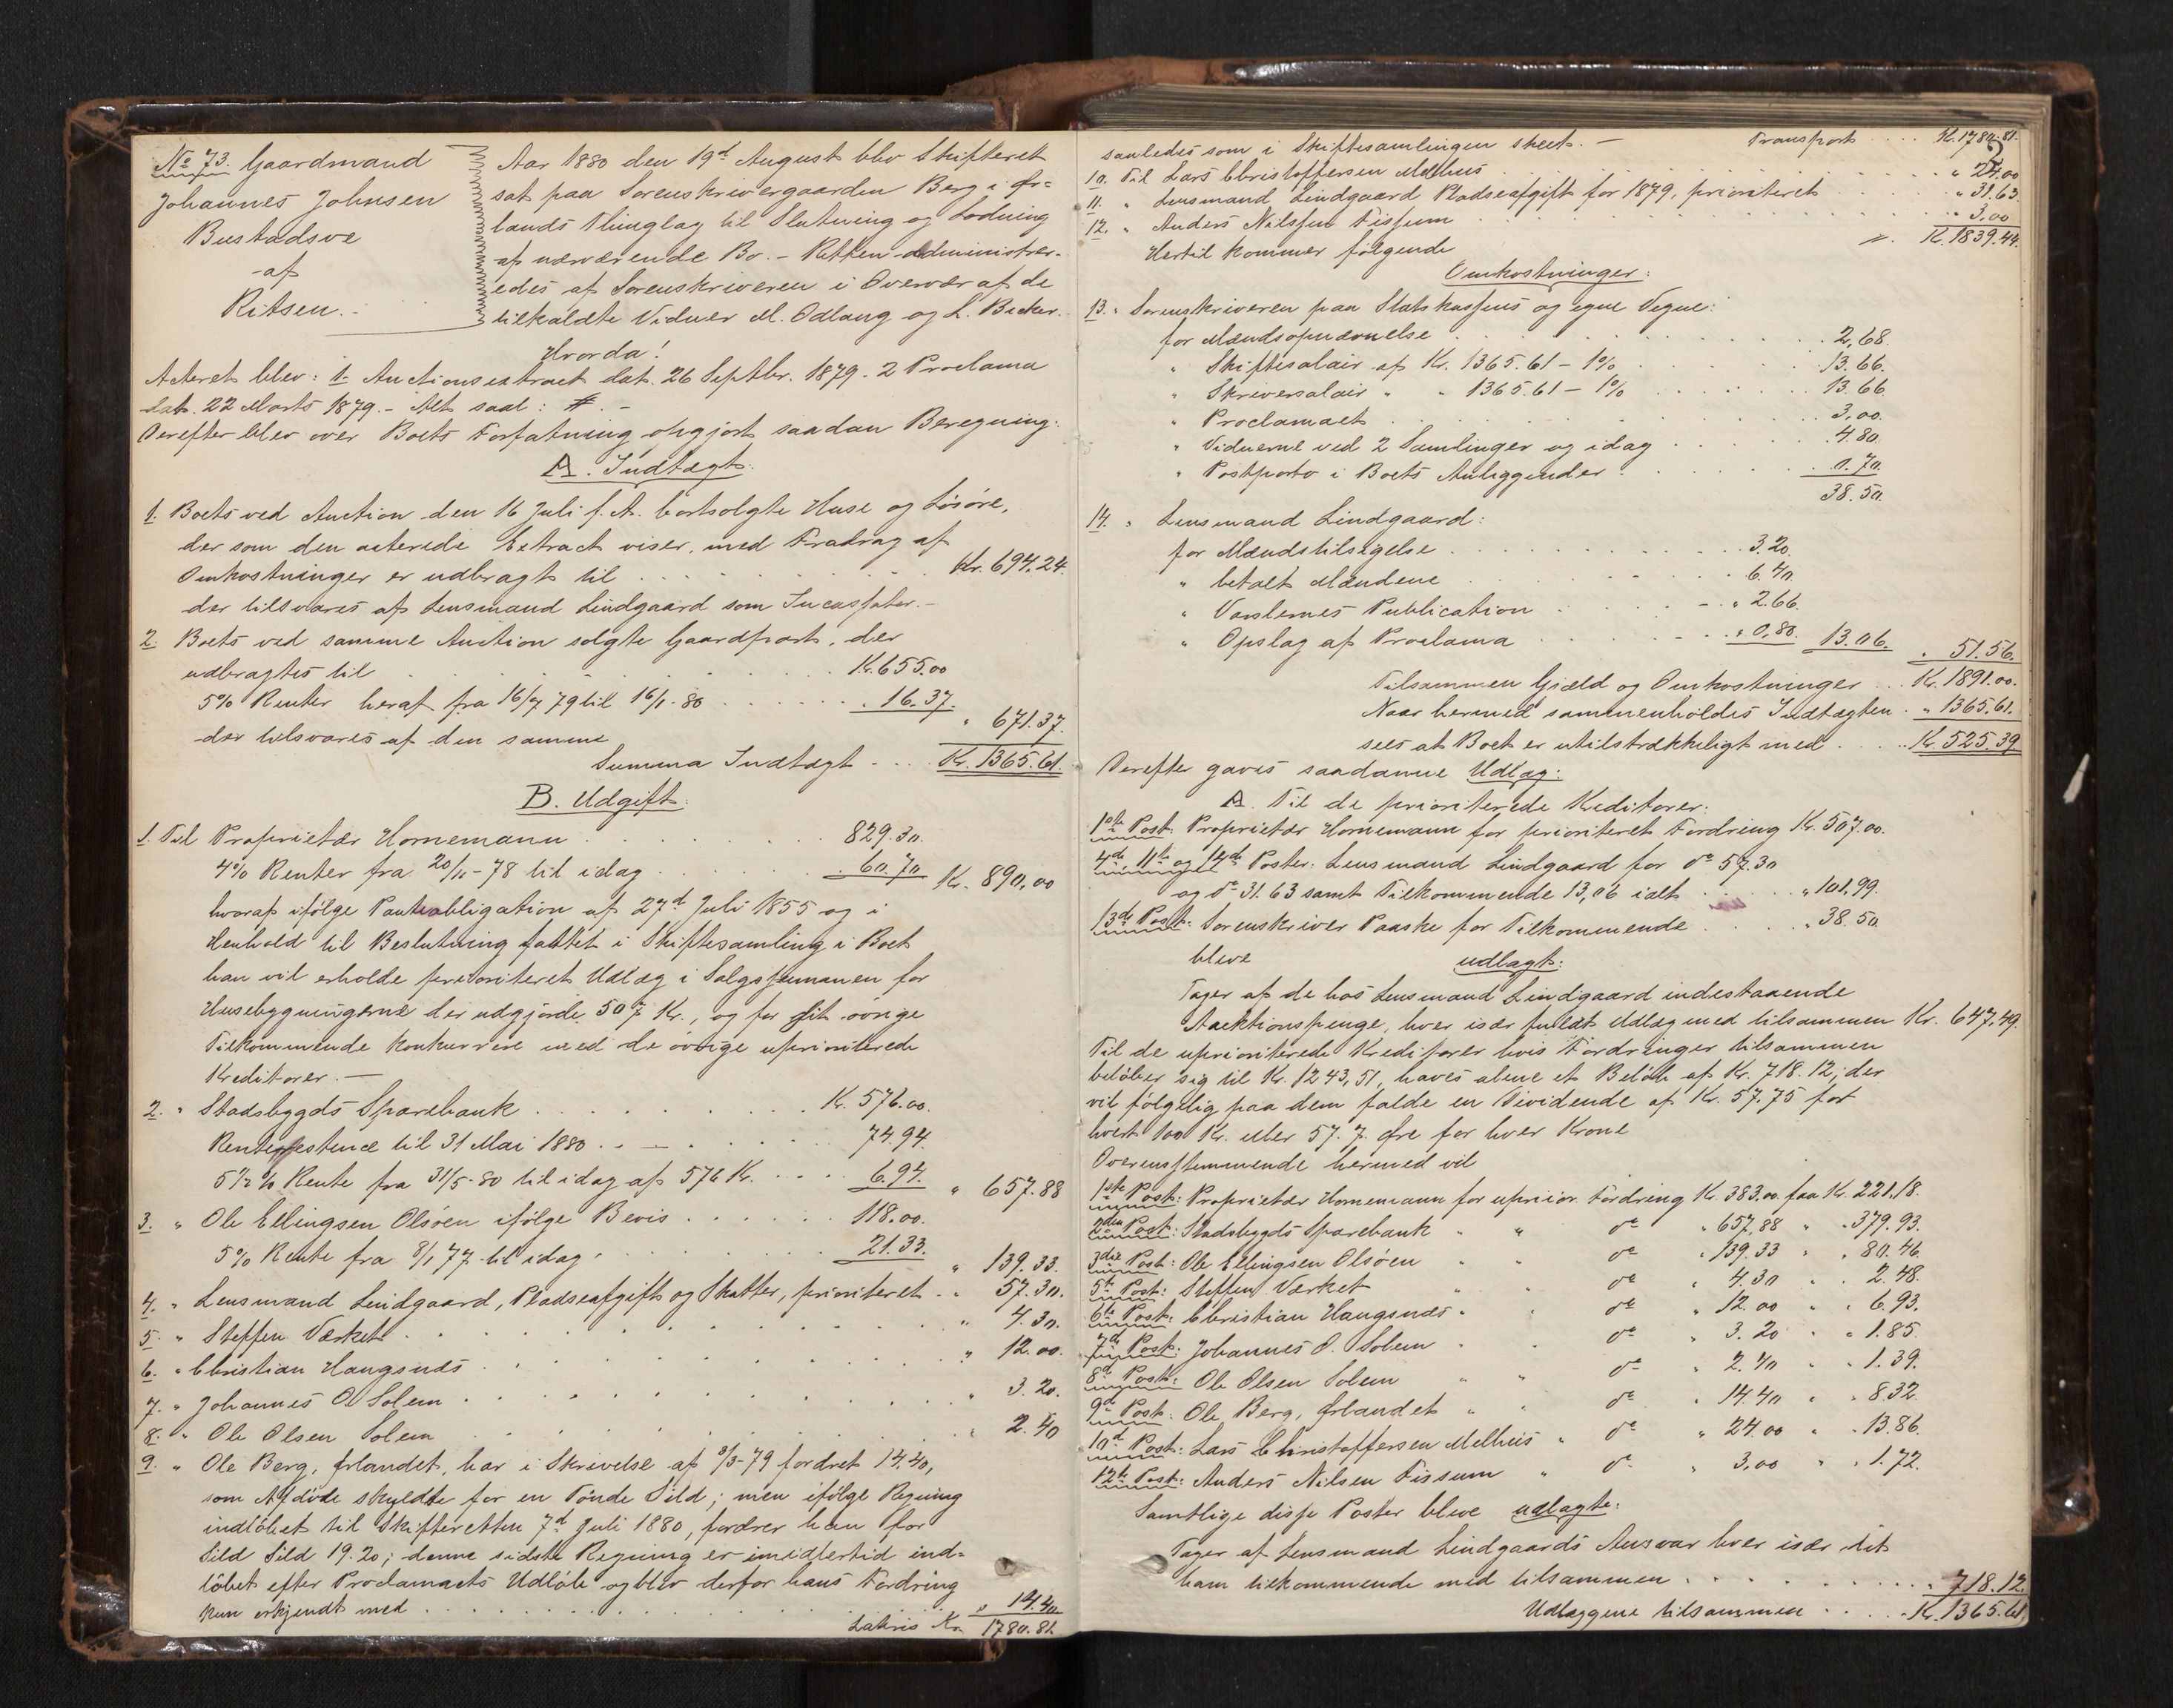 No 73. Gaardmand
Johannes Johnsen
Bustadsve
af
Ritsen.
Aar 1880 den 19d August blev Skifteret
sat paa Sorenskrivergaarden Berg i Ør=
lands Thinglag til Slutning og Lodning
af nærværende Bo. - Retten administrer-
edes af Sorenskriveren i Overvær af de
tilkaldte Vidner M. Odlaug og L. Becker.
Hvorda!
Acteret blev: 1. Auctionsextract dat. 26 Septbr. 1879. 2 Proclama
dat. 22 Marts 1879. - Alt saal: #. -
Derefter blev over Boets Forfatning opgjort saadan Beregning:
A. Indtægt:
1. Boets ved Auction den 16 Juli f. A. bortsolgte Huse og Løsøre,
der som den acterede Extract viser, med Fradrag af
Omkostninger er udbragt til . . . Kr. 694.24.
der tilsvares af Lensmand Lindgaard som Incassator. -
2. Boets ved samme Auction solgte Gaardpart, der
udbragtes til . . . Kr. 655.00
5% Renter heraf fra 16/7 79 til 16/1-80 . . . " 16.37. " 671.37.
der tilsvares af den samme
Summa Indtægt - . . . Kr. 1365.61.
B. Udgift:
1. Til Proprietær Hornemann . . . 829.30.
4% Renter fra 20/11-78 til idag . . . 60.70 Kr. 890,00
hvoraf ifølge Panteobligation af 27d Juli 1855 og i
Henhold til Beslutning fattet i Skiftesamling i Boet
han vil erholde prioriteret Udlæg i Salgssummen for
Husebygningerne der udgjorde 507 Kr., og for sit øvrige
Tilkommende konkurrere med de øvrige uprioriterede
Kreditorer. -
2. " Stadsbygds Sparebank . . . Kr. 576.00.
Renterestence til 31 Mai 1880 . . . 74.94.
5 1/2 % Rente fra 31/5-80 til idag af 576 Kr. . . . 6.94. " 657.88
3. " Ole Ellingsen Olsøen ifølge Bevis . . . 118.00.
5% Rente fra 8/1 77 til idag . . . 21.33. " 139.33.
4. " Lensmand Lindgaard, Pladseafgift og Skatter, prioriteret - " 57.30.
5. " Steffen Værket . . . " 4.30.
6. " Christian Haugsnæs . . . " 12.00.
7. " Johannes O. Solem . . . " 3.20.
8. " Ole Olsen Solem . . . " 2.40
9. " Ole Berg, Ørlandet, har i Skrivelse af 9/3-79 fordret 14.40,
som Afdøde skyldte for en Tønde Sild; men ifølge Regning
indløbet til Skifteretten 7d Juli 1880, fordrer han for
Sild Sild 19.20; denne sidste Regning er imidlertid ind=
løbet efter Proclamaets Udløb og blev derfor hans Fordring
kun erkjendt med . . . " 14.40
Lateris Kr. 1780.81.
saaledes som i Skiftesamlingen skeet. - Transport . . . Kr. 1780.81.
10. Til Lars Christoffersen Melhus . . . " 24.00
11. " Lensmand Lindgaard Pladseafgift for 1879, prioriteret . . . " 31.63.
12. " Anders Nilssen Fissum . . . " 3.00
Hertil kommer følgende Kr. 1839.44.
Omkostninger:
13. " Sorenskriveren paa Statskassens og egne Vegne:
for Mændsopnævnelse . . . 2,68.
" Skiftesalair af Kr. 1365.61 - 1% . . . 13.66.
" Skriversalair " " 1365.61 - 1% . . . 13.66
" Proclamaet . . . 3,00.
" Vidnerne ved 2 Samlinger og idag . . . 4.80
" Postporto i Boets Anliggender . . . 0.70.
38.50.
14. " Lensmand Lindgaard:
for Mændstilsigelse . . . 3.20.
" betalt Mændene . . . 6.40.
" Varslernes Publication . . . " 2.66.
" Opslag af Proclama . . . " 0,80. 13.06. " 51.56.
Tilsammen Gjæld og Omkostninger . . . Kr. 1891.00.
Naar hermed sammenholdes Indtægten . " 1365.61.
sees at Boet er utilstrækkeligt med . . . Kr. 525.39
Derefter gaves saadanne Udlæg:
A. Til de prioriterede Kreditorer:
1ste Post: Proprietær Hornemann for prioriteret Fordring Kr. 507.00.
4de, 11te og 14de Poster: Lensmand Lindgaard for do 57.30
og do 31.63 samt Tilkommende 13,06 ialt . . . " 101,99.
13de Post: Sorenskriver Paaske for Tilkommende . . . " 38.50.
bleve udlagt:
Tager af de hos Lensmand Lindgaard indestaaende
Auktionspenge, hver især fuldt Udlæg med tilsammen Kr. 647.49.
Til de uprioriterede Kreditorer hvis Fordringer tilsammen
beløber sig til Kr. 1243,51, haves alene et Beløb af Kr. 718.12; der
vil følgelig paa dem falde en Dividende af Kr. 57.75 for
hvert 100 Kr. eller 57.7. Øre for hver Krone
Overensstemmende hermed vil
1ste Post: Proprietær Hornemann for uprior. Fordring Kr. 383.00 faa Kr. 221.18.
2den Post: Stadsbygds Sparebank " " do " 657,88 " " 379.93.
3die Post: Ole Ellingsen Olsøen " " do " 139.33 " " 80.46.
5te Post: Steffen Værket " " do " 4.30 " " 2.48.
6te Post: Christian Haugsnæs " " do " 12.00 " " 6.93.
7de Post: Johannes O. Solem " " do " 3.20 " " 1.85.
8de Post: Ole Olsen Solem " " do " 2.40 " " 1.39.
9de Post: Ole Berg, Ørlandet " " do " 14.40 " " 8.32.
10de Post: Lars Christoffersen Melhus " do " 24.00 " " 13.86.
12te Post: Anders Nilsen Fissum " do " 3,00 " " 1.72.
Samtlige disse Poster bleve udlagte:
Tager af Lensmand Lindgaards Ansvar hver især det
ham tilkommende med tilsammen . . . " 718.12.
Udlæggene tilsammen . . . Kr. 1365.61